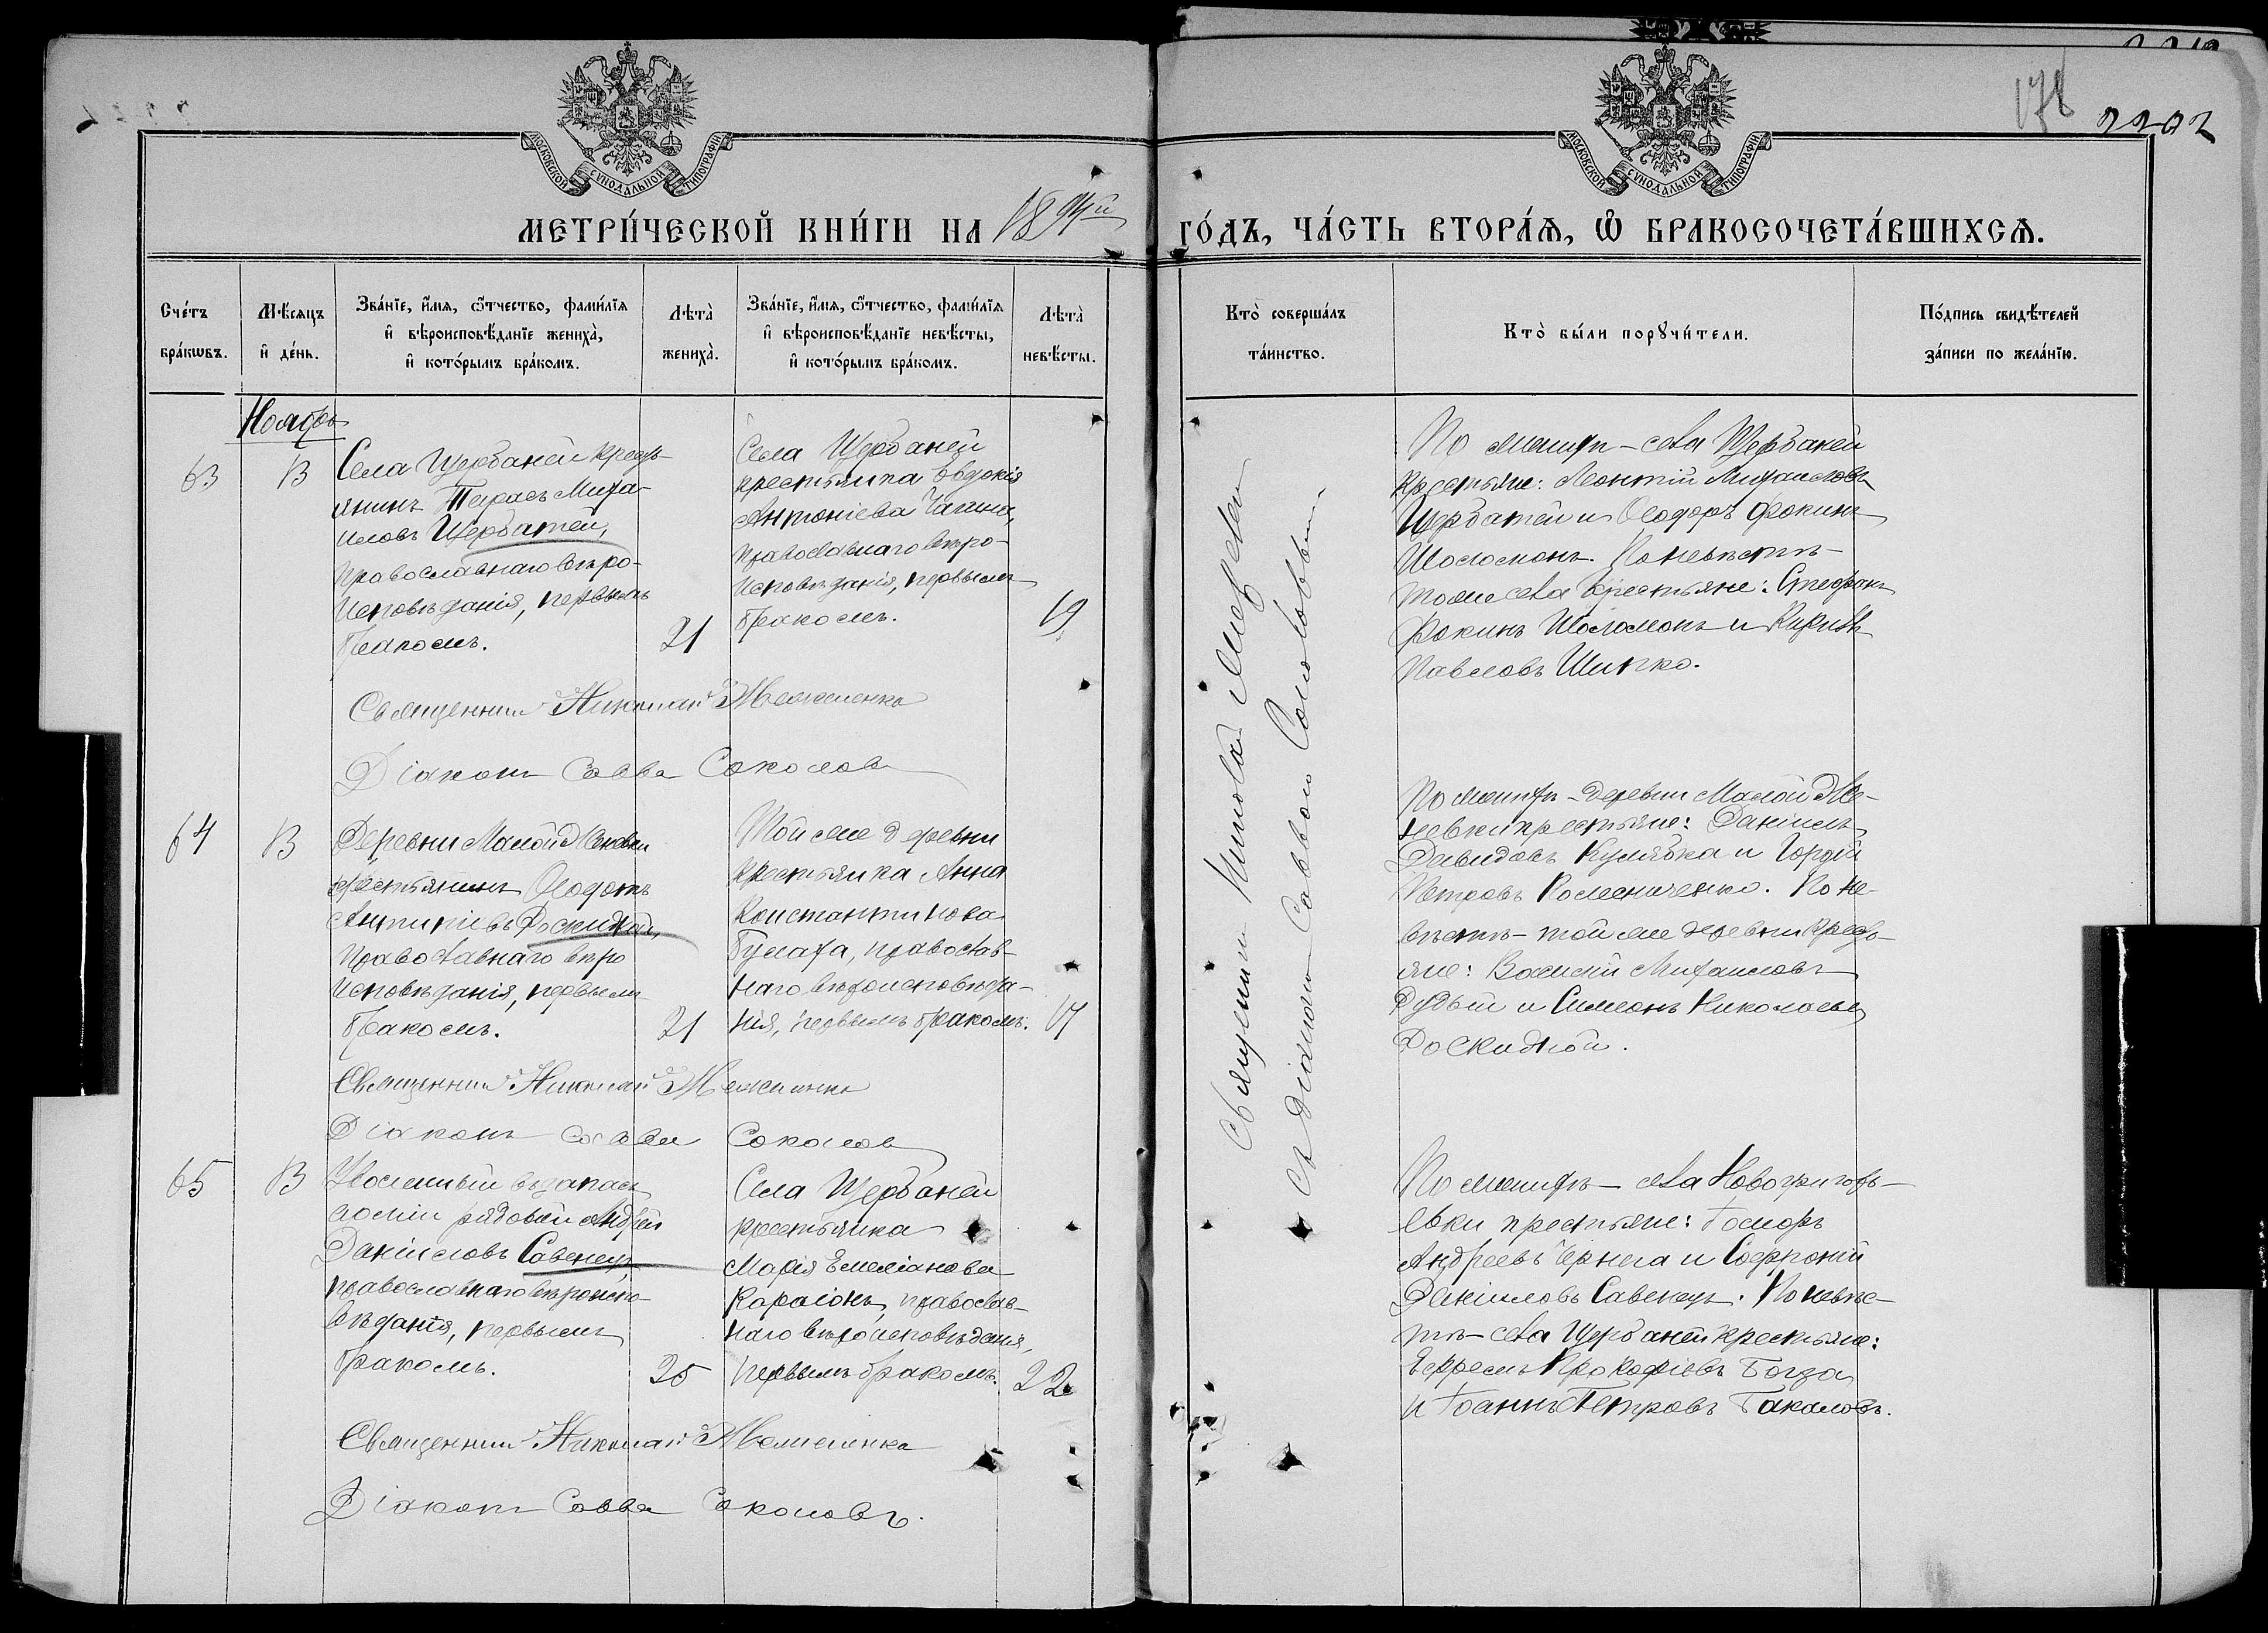 178
2202
МОСКОВСКОЙ СѴНОДАЛЬНОЙ ТИПОГРАФІИ
МОСКОВСКОЙ СѴНОДАЛЬНОЙ ТИПОГРАФІИ
МЕТРИ́ЧЕСКОЙ КНИ́ГИ НА 1894й
ГО́ДЪ, ЧА́СТЬ ВТОРА́Ѧ, Ѽ БРАКОСОЧЕТА́ВШИХСѦ.
Сче́тъ
бра́кѡвъ.
Мѣ́сяцъ
и҆ де́нь.
Зва́нїе, и҆́мѧ, ѻ҆́тчество, фами́лїѧ
и҆ вѣроисповѣ́данїе жениха̀,
и҆ кото́рымъ бра́комъ.
Лѣта̀
жениха̀.
Зва́нїе, и҆́мѧ, ѻ҆́тчество, фами́лїѧ
и҆ вѣроисповѣ́данїе невѣ́сты,
и҆ кото́рымъ бра́комъ.
Лѣта̀
невѣ́сты.
Кто̀ соверша́лъ
та́инство.
Кто̀ бы́ли порꙋчи́тели.
По́дпись свидѣ́телей
за́писи по жела́нїю.
Ноябрь
63
13
Села Щербаней крестъ-
янинъ Тарасъ Миха-
иловъ Щербатей,
православнаго вѣро-
исповѣданія, первымъ
бракомъ.
21
Села Щербаней
крестьянка Евдокія
Антоніева
православнаго вѣро-
исповѣданія, первымъ
бракомъ.
19
По женихѣ – села Щербаней
крестьяне: Леонтій Михаиловъ
Щербатей и Ѳеодоръ Фокинъ
Шоломонъ. По невѣстѣ –
тогоже села крестьяне: Стефанъ
Фокинъ Шоломонъ и Кирилъ
Павловъ Шипко.
Священникъ Николай
Діаконъ Савва Соколовъ
Священникъ Николай
съ діакономъ Саввою Соколовымъ.
64
13
Деревни Малой
крестьянинъ Ѳеодотъ
Антипіевъ Роскидной,
православнаго вѣро
исповѣданія, первымъ
бракомъ.
21
Той же деревни
крестьянка Анна
Константинова
православ-
наго вѣроисповѣда-
нія, первымъ бракомъ.
17
По женихѣ – деревни Малой
крестьяне: Даніилъ
Давидовъ Кулябка и Гордій
Петровъ Колесниченко. По не-
вѣстѣ – той же деревни кресть-
яне: Василій Михаиловъ
Рудый и Симеонъ Николаевъ
Роскидной.
Священникъ Николай
Діаконъ Савва Соколовъ
65
13
Уволенный въ запасъ
арміи рядовой Андрей
Даніиловъ Савенецъ,
православнаго вѣроиспо-
вѣданія, первымъ
бракомъ.
25
Села Щербаней
крестьянка
Марія Емеліанова
Караіонъ, православ-
наго вѣроисповѣданія,
первымъ бракомъ.
22
По женихѣ – села Новогригорь-
евки крестьяне:
Андреевъ Чернега и Софроній
Даніиловъ Савенецъ. По невѣс-
тѣ – села Щербаней крестьяне:
Ефремъ Прокофіевъ
и Іоаннъ Петровъ Бакаловъ.
Священникъ Николай
Діаконъ Савва Соколовъ.